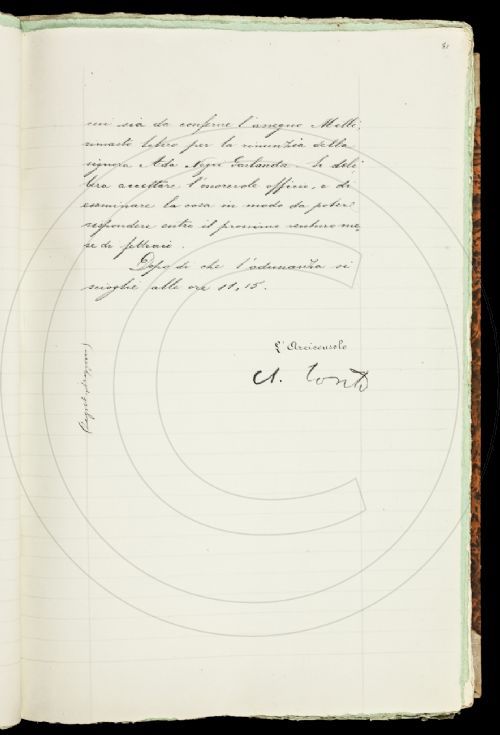 81
cui sia da conferire l'assegno Milli
rimasto libero per la rinunzia della
signora Ada Negri Garlanda. Si deli
bera accettare l'onorevole officio, e di
esaminare la cosa in modo da poter
rispondere entro il prossimo venturo me
se di febbraio.
Dopo di che l'adunanza si
scioglie alle ore 11,15.
L'Arciconsolo
A. Conti